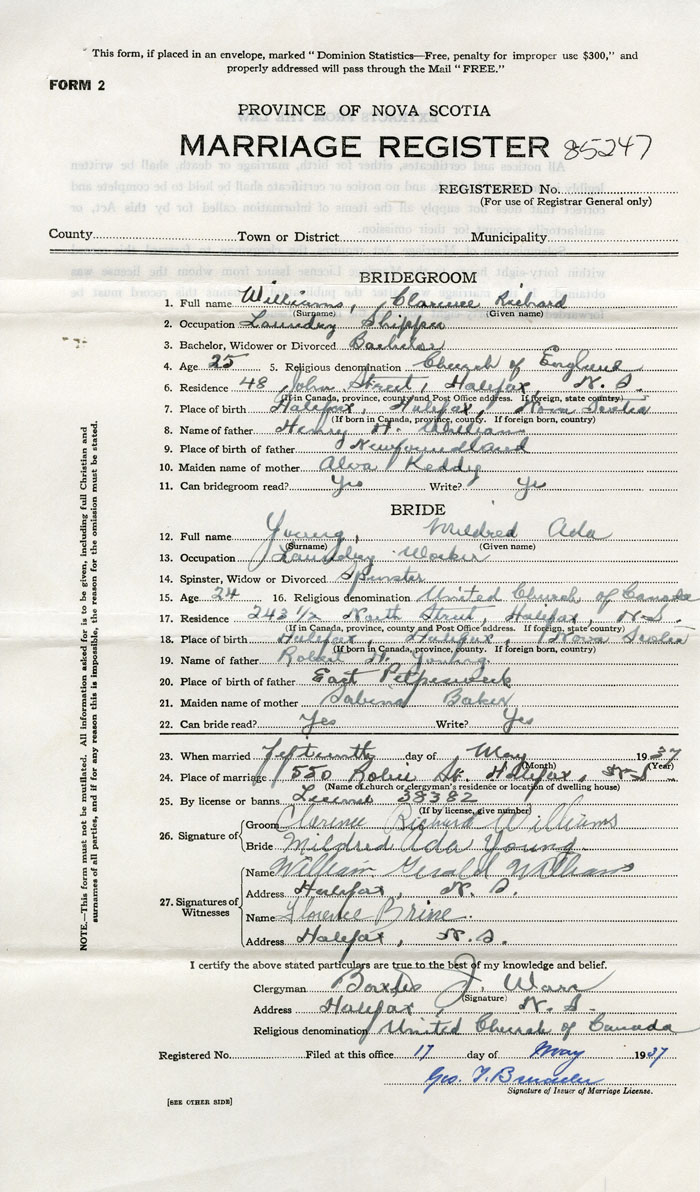 This form, if placed in an envelope, marked "Dominion Statistics—Free, penalty for improper use $300," and
properly addressed will pass through the Mail "FREE."
FORM 2
PROVINCE OF NOVA SCOTIA
MARRIAGE REGISTER 85247
REGISTERED No.
(For use of Registrar General only)
County Town or District Municipality
BRIDEGROOM
1. Full name Williams, Clarence Richard
(Surname) (Given name)
2. Occupation Laundry Shipper
3. Bachelor, Widower or Divorced Bachelor
4. Age 25 5. Religious denomination Church of England
6. Residence 48 John Street, Halifax, N. S.
(If in Canada, province, county and Post Office address. If foreign, state country)
7. Place of birth Halifax, Halifax, Nova Scotia
(If born in Canada, province, county. If foreign born, country)
8. Name of father Henry H. Williams
9. Place of birth of father Newfoundland
10. Maiden name of mother Alva Keddy
11. Can bridegroom read? Yes Write? Yes
BRIDE
12. Full name Young, Mildred Ada
(Surname) (Given name)
13. Occupation Laundry Worker
14. Spinster, Widow or Divorced Spinster
15. Age 24 16. Religious denomination United Church of Canada
17. Residence 243 1/2 North Street, Halifax, N.S.
(If in Canada, province, county and Post Office address. If foreign, state country)
18. Place of birth Halifax, Halifax, Nova Scotia
(If born in Canada, province, county. If foreign born, country)
19. Name of father Robert H. Young
20. Place of birth of father East Petpeswick
21. Maiden name of mother Sabina Baker
22. Can bride read? Yes Write? Yes
23. When married fifteenth day of May 1937
(Month) (Year)
24. Place of marriage 550 Robie St. Halifax, N.S.
(Name of church or clergyman's residence or location of dwelling house)
25. By license or banns License 38382
(If by license, give number)
26. Signature of Groom Clarence Richard Williams
Bride Mildred Ada Young.
27. Signatures of Witnesses Name William Gerald Williams
Address Halifax, N. S.
Name Florence Brine.
Address Halifax, N.S.
I certify the above stated particulars are true to the best of my knowledge and belief.
Clergyman J.
(Signature)
Address Halifax, N. S.
Religious denomination United Church of Canada
Registered No. Filed at this office 17 day of May 1937
Geo. T.
Signature of Issuer of Marriage License.
[SEE OTHER SIDE]
NOTE.—This form must not be mutilated. All information asked for is to be given, including full Christian and
surnames of all parties, and if for any reason this is impossible, the reason for the omission must be stated.